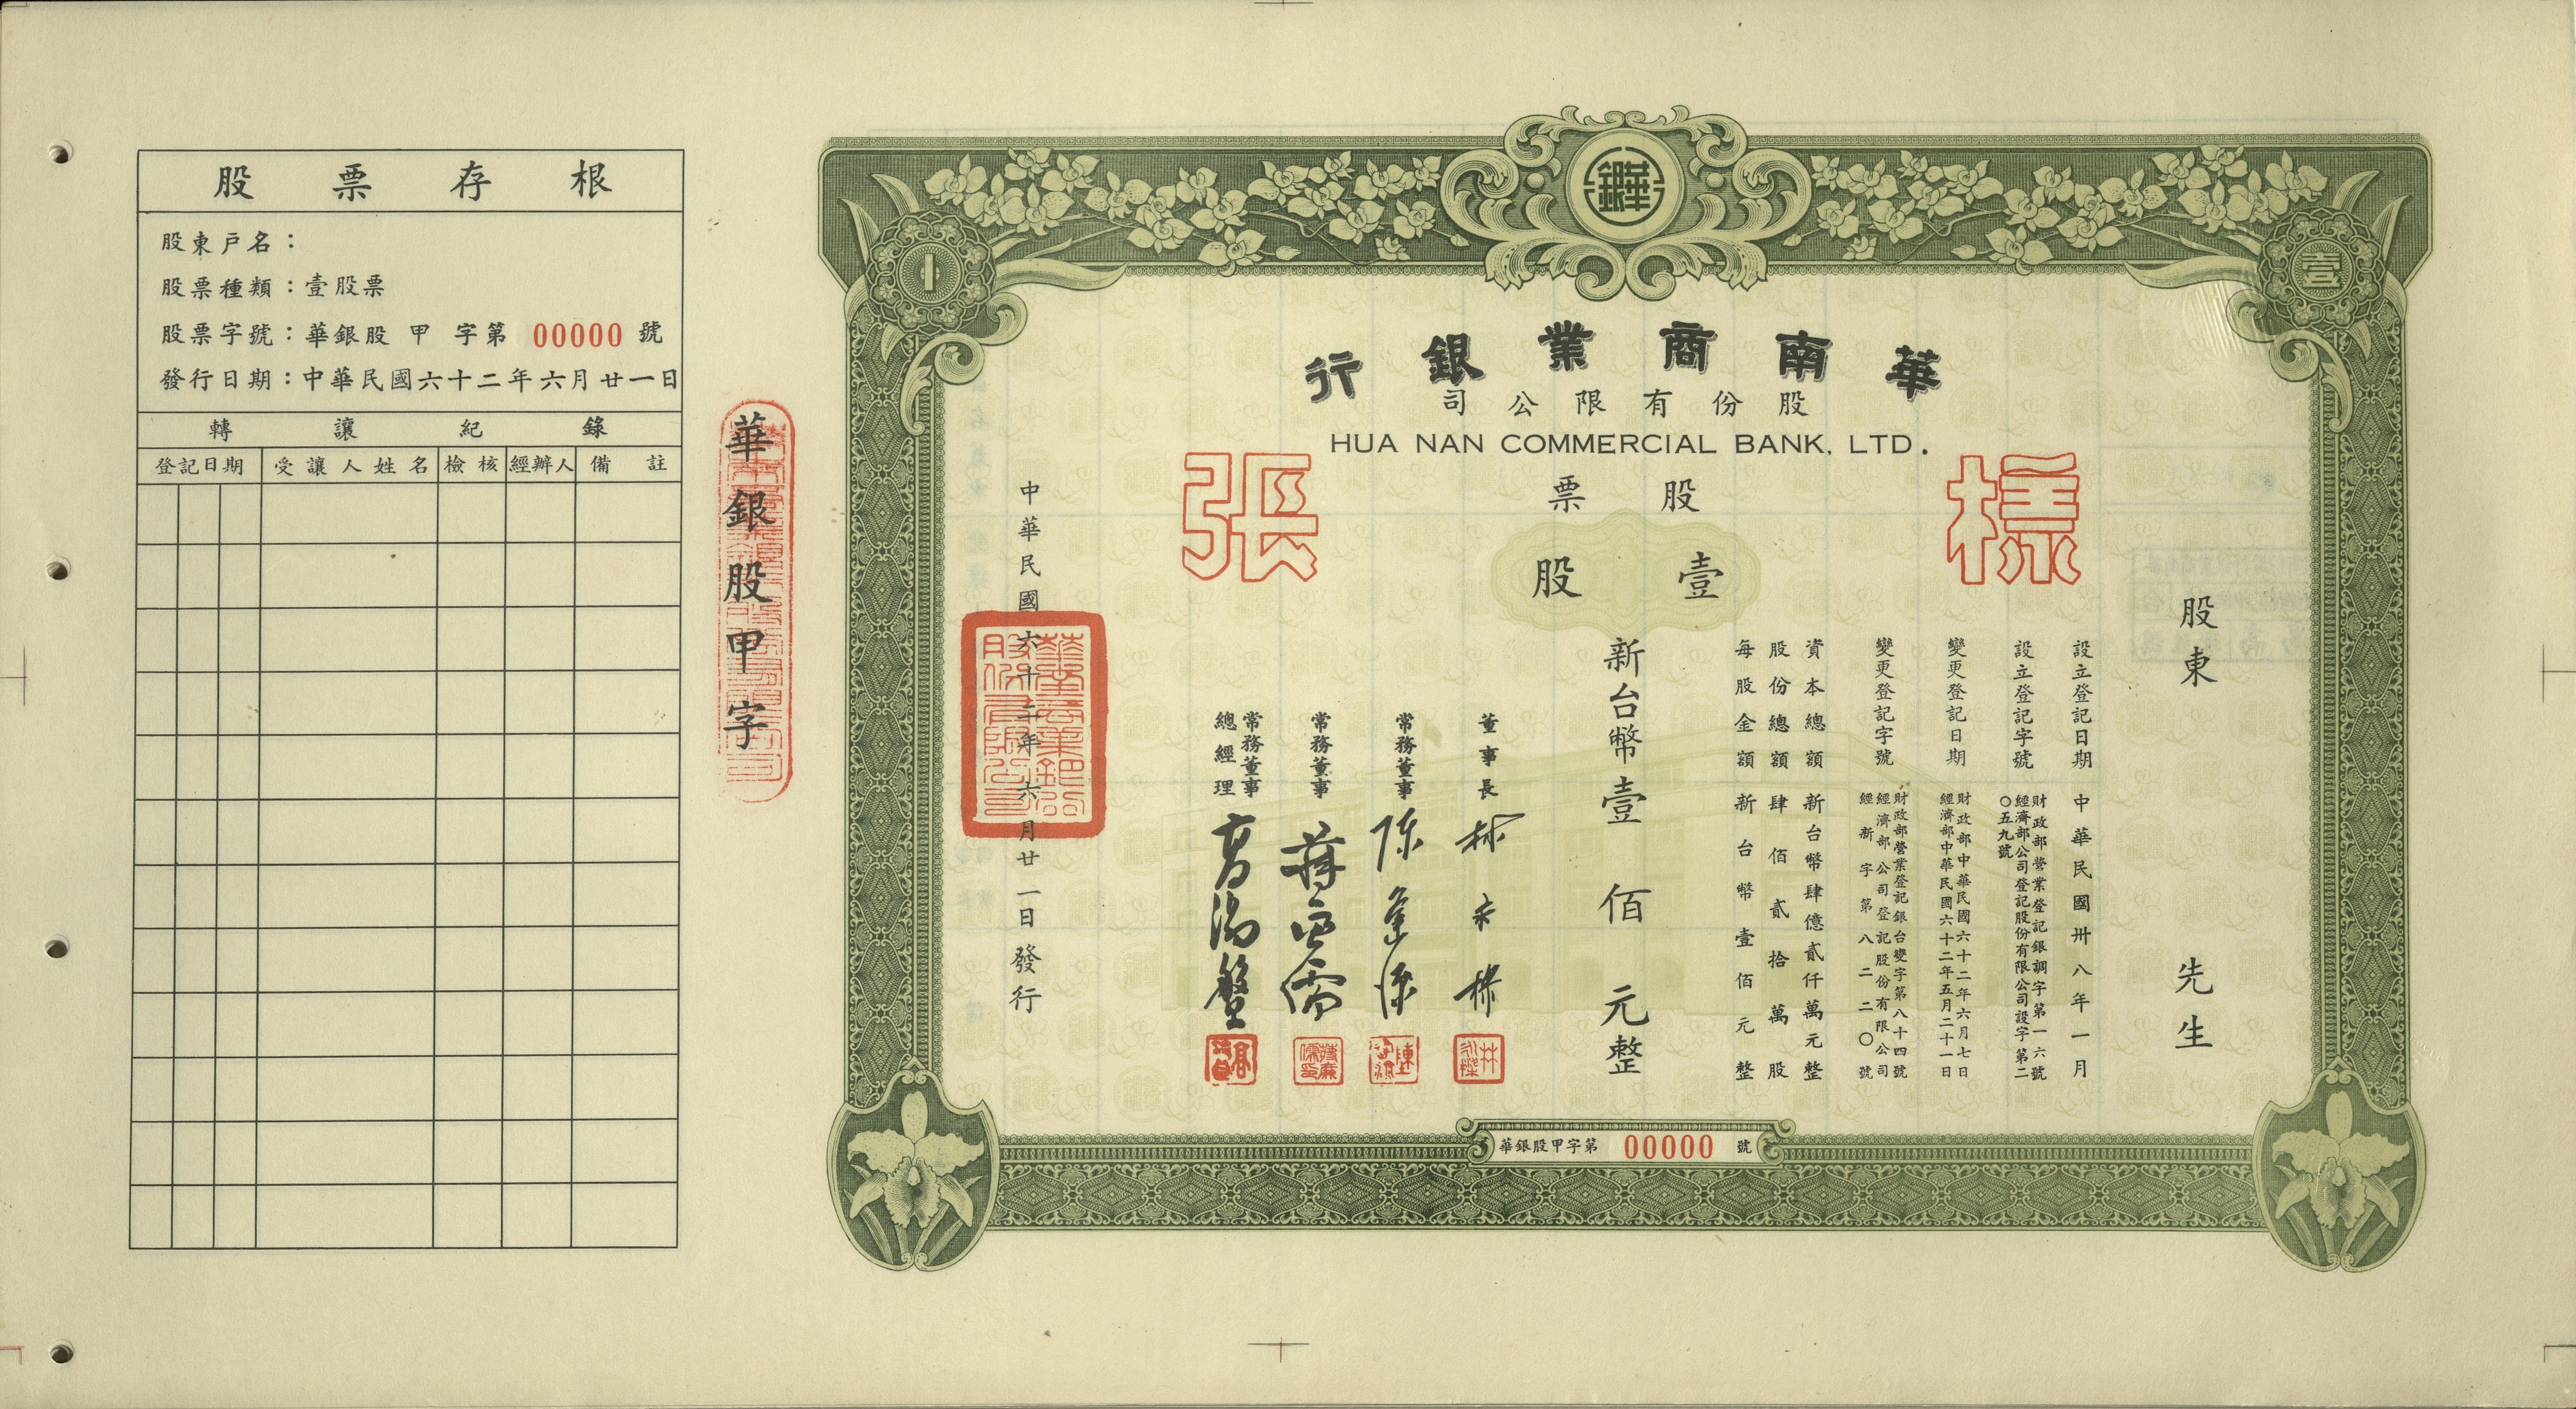 股票存根
股東戶名：
股票種類：壹股票
股票字號：華銀股 甲 字第 00000 號
發行日期：中華民國六十二年六月廿一日
轉讓紀錄
登記日期 受讓人姓名 檢核 經辦人 備註
華銀股甲字
華銀
1
壹
華南商業銀行
股份有限公司
HUA NAN COMMERCIAL BANK, LTD.
樣張
股票
壹股
股東 先生
設立登記日期 中華民國卅八年一月
設立登記字號 財政部營業登記銀調字第一六號
經濟部公司登記股份有限公司設字第二〇五九號
變更登記日期 財政部中華民國六十二年六月七日
經濟部中華民國六十二年五月二十一日
變更登記字號 財政部營業登記銀台變字第八十四號
經濟部公司登記股份有限公司
經新字第八二二〇號
資本總額 新台幣肆億貳仟萬元整
股份總額 肆佰貳拾萬股
每股金額 新台幣壹佰元整
新台幣壹佰元整
董事長 林永樑
常務董事
常務董事
常務董事
總經理
中華民國六十二年六月廿一日發行
華南商業銀行股份有限公司
華銀股甲字第 00000 號